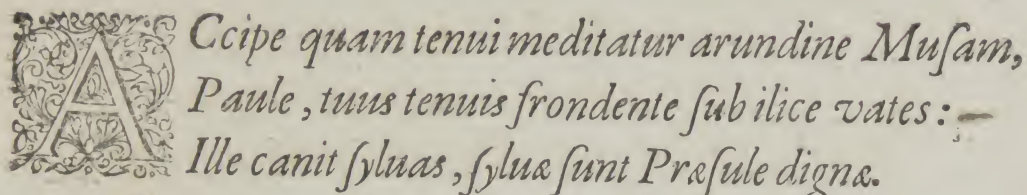 ACcipe quam tenui meditatur arundine Muſam,
Paule, tuus tenuis frondente ſub ilice vates:
Ille canit ſyluas, ſyluæ ſunt Præſule dignæ.